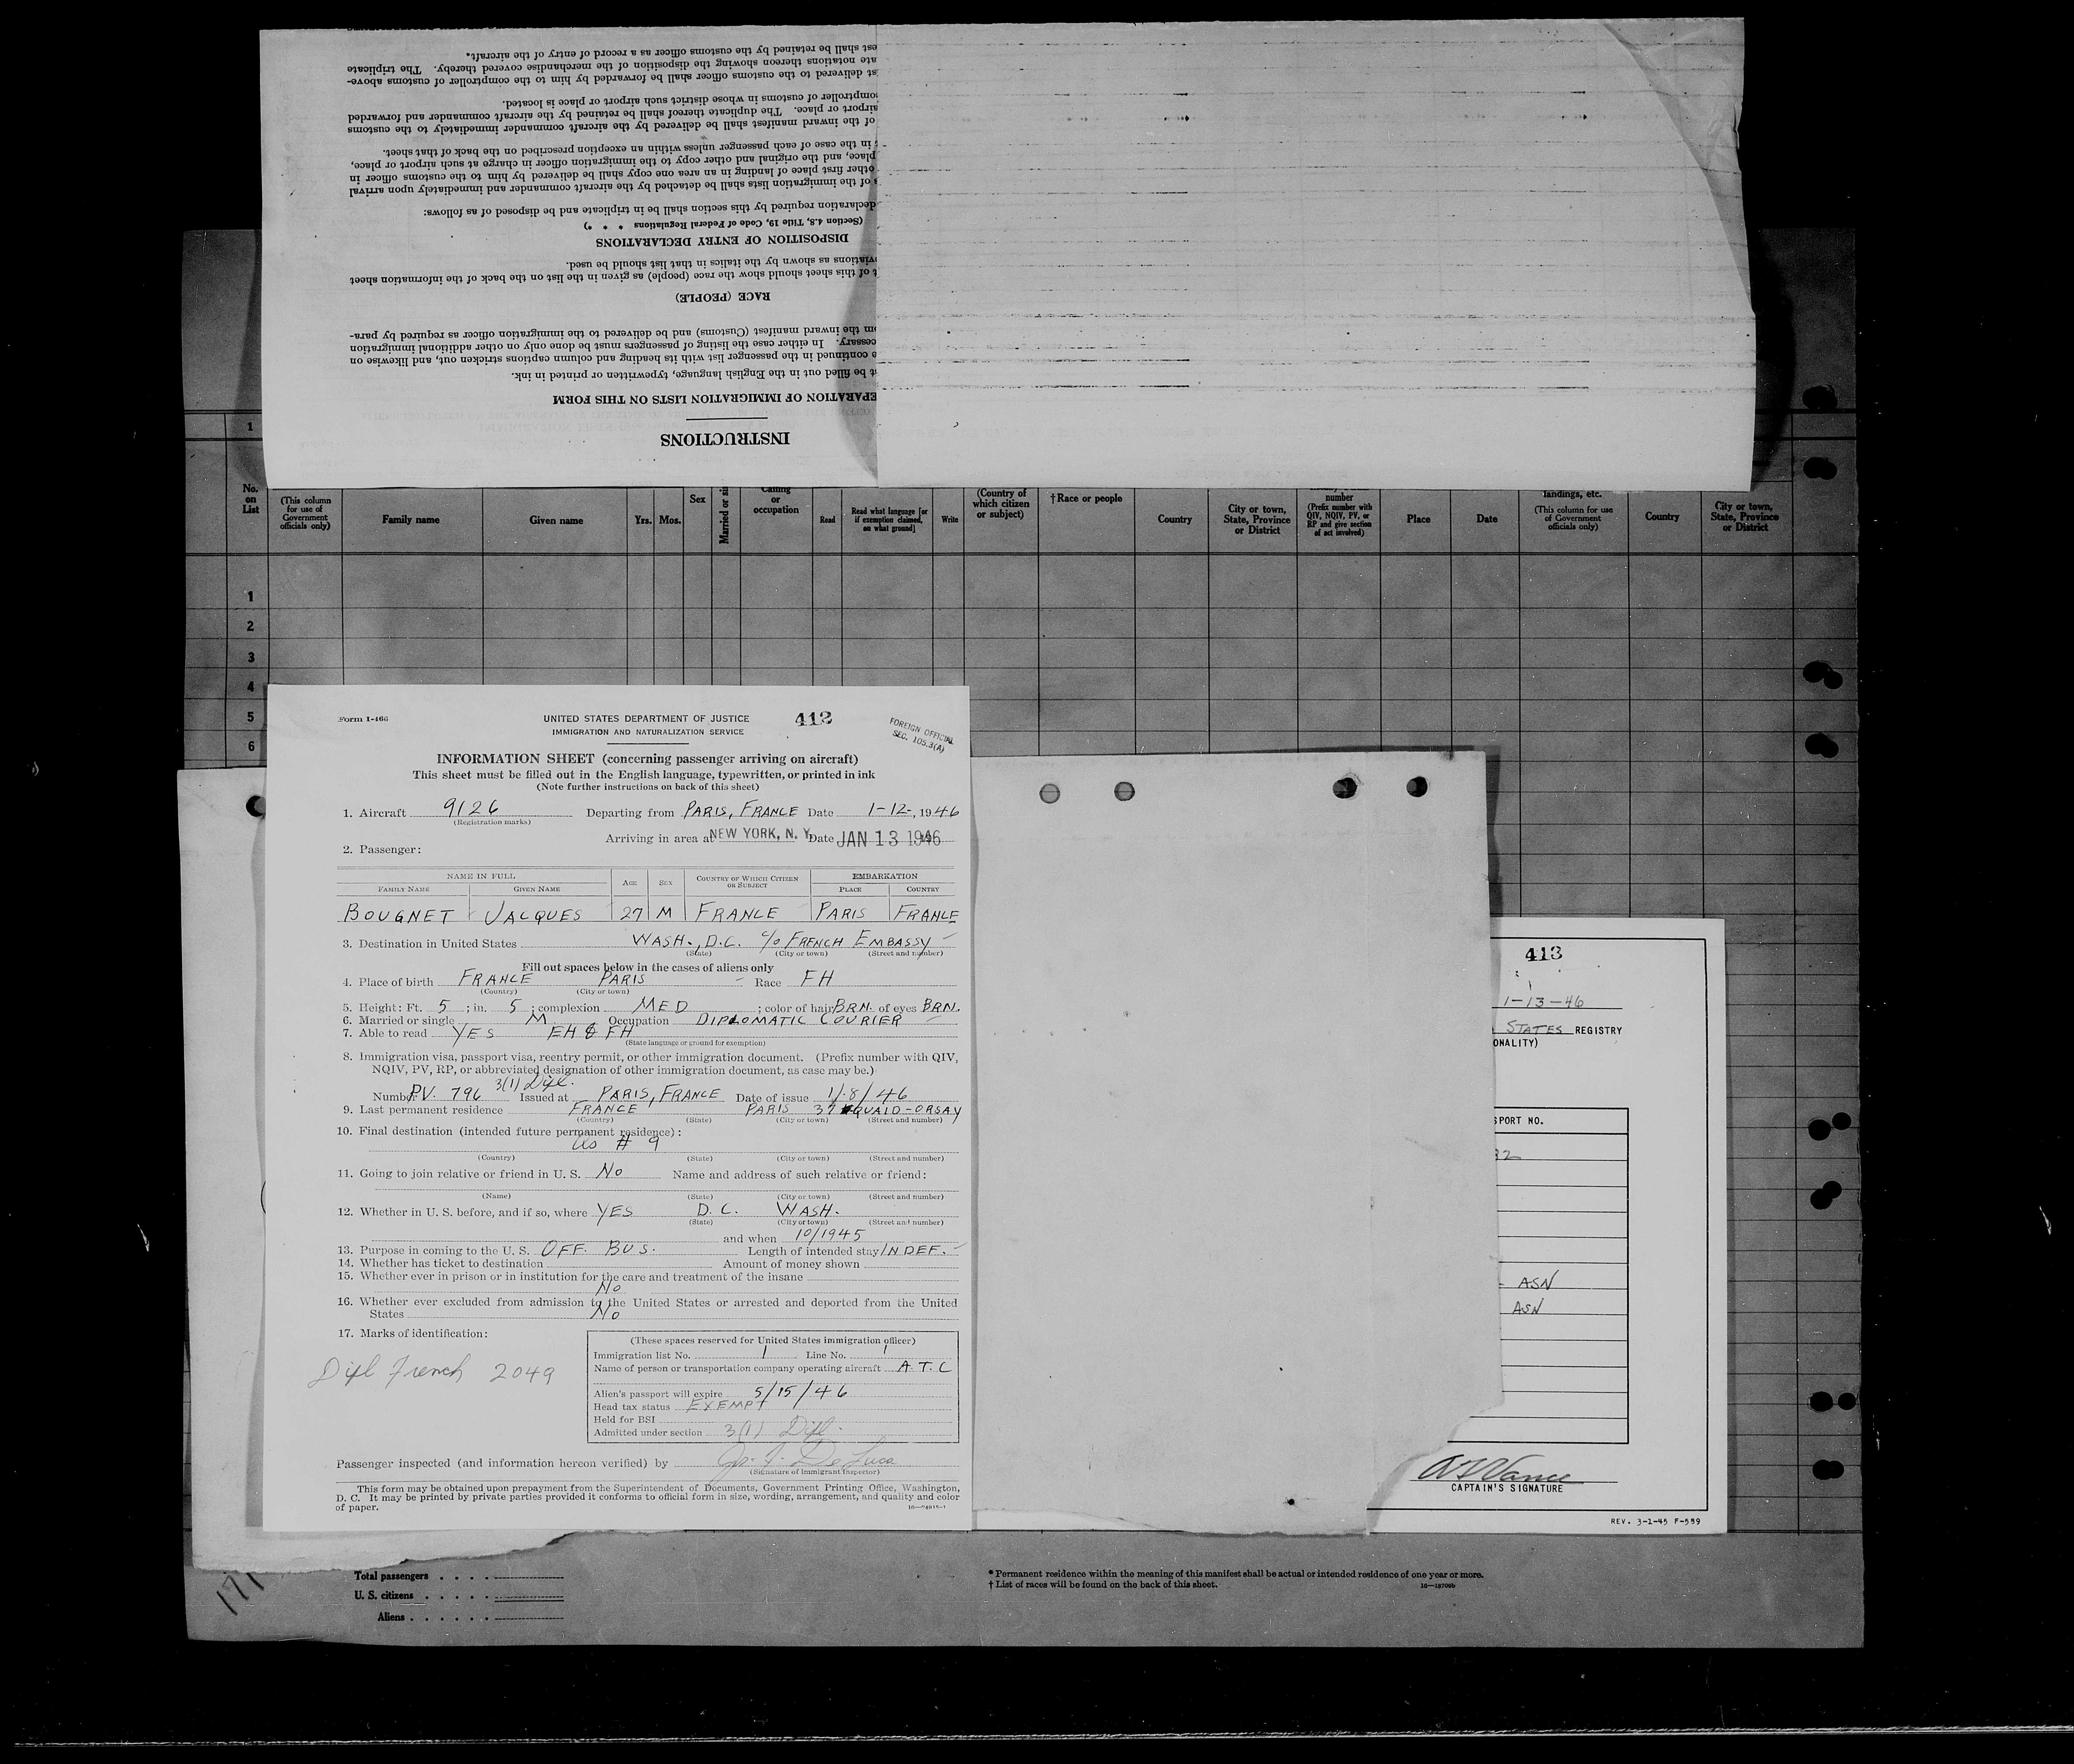 est shall be retained by the customs officer as a record of entry of the aircraft.
ate notations thereon showing the disposition of the merchandise covered thereby. The triplicate
st delivered to the customs officer shall be forwarded by him to the comptroller of customs above-
omptroller of customs in whose district such airport or place is located.
airport or place. The duplicate thereof shall be retained by the aircraft commander and forwarded
of the inward manifest shall be delivered by the aircraft commander immediately to the customs
in the case of each passenger unless within an exception prescribed on the back of that sheet.
place, and the original and other copy to the immigration officer in charge at such airport or place,
other first place of landing in an area one copy shall be delivered by him to the customs officer in
of the immigration lists shall be detached by the aircraft commander and immediately upon arrival
declaration required by this section shall be in triplicate and be disposed of as follows:
(Section 4.8, Title 19, Code of Federal Regulations * * *)
DISPOSITION OF ENTRY DECLARATIONS
viations as shown by the italics in that list should be used.
t of this sheet should show the race (people) as given in the list on the back of the information sheet
RACE (PEOPLE)
om the inward manifest (Customs) and be delivered to the immigration officer as required by para-
cessary. In either case the listing of passengers must be done only on other additional immigration
e continued in the passenger list with its heading and column captions stricken out, and likewise on
t be filled out in the English language, typewritten or printed in ink.
EPARATION OF IMMIGRATION LISTS ON THIS FORM
INSTRUCTIONS
1
No. on List
(This column for use of Government officials only)
Family name
Given name
Yrs.
Mos.
Sex
Married or si
Calling or occupation
Read
Read what language [or if exemption claimed, on what ground]
Write
(Country of which citizen or subject)
†Race or people
Country
City or town, State, Province or District
number (Prefix number with QIV, NQIV, PV, or RP and give section of act involved)
Place
Date
landings, etc. (This column for use of Government officials only)
Country
City or town, State, Province or District
1
2
3
4
5
6
Form I-466
UNITED STATES DEPARTMENT OF JUSTICE
IMMIGRATION AND NATURALIZATION SERVICE
413
FOREIGN OFFICIAL
SEC. 105.3(A)
INFORMATION SHEET (concerning passenger arriving on aircraft)
This sheet must be filled out in the English language, typewritten, or printed in ink
(Note further instructions on back of this sheet)
1. Aircraft 9126 Departing from PARIS, FRANCE Date 1-12-, 1946
(Registration marks)
Arriving in area at NEW YORK, N. Y. Date JAN 13 1946
2. Passenger:
NAME IN FULL AGE SEX COUNTRY OF WHICH CITIZEN OR SUBJECT EMBARKATION
FAMILY NAME GIVEN NAME PLACE COUNTRY
BOUGNET JACQUES 27 M FRANCE PARIS FRANCE
3. Destination in United States WASH., D.C. c/o FRENCH EMBASSY
(State) (City or town) (Street and number)
Fill out spaces below in the cases of aliens only
4. Place of birth FRANCE PARIS Race FH
(Country) (City or town)
5. Height: Ft. 5; in. 5; complexion MED; color of hair BRN. of eyes BRN.
6. Married or single M Occupation DIPLOMATIC COURIER
7. Able to read YES EH & FH
(State language or ground for exemption)
8. Immigration visa, passport visa, reentry permit, or other immigration document. (Prefix number with QIV,
NQIV, PV, RP, or abbreviated designation of other immigration document, as case may be.)
3(1) Dipl.
Number PV. 796 Issued at PARIS, FRANCE Date of issue 1/8/46
9. Last permanent residence FRANCE PARIS 37 QUAI D-ORSAY
(Country) (State) (City or town) (Street and number)
10. Final destination (intended future permanent residence):
As # 9
(Country) (State) (City or town) (Street and number)
11. Going to join relative or friend in U. S. No Name and address of such relative or friend:
(Name) (State) (City or town) (Street and number)
12. Whether in U. S. before, and if so, where YES D. C. WASH.
(State) (City or town) (Street and number)
and when 10/1945
13. Purpose in coming to the U. S. OFF. BUS. Length of intended stay INDEF.
14. Whether has ticket to destination Amount of money shown
15. Whether ever in prison or in institution for the care and treatment of the insane
No
16. Whether ever excluded from admission to the United States or arrested and deported from the United
States No
17. Marks of identification:
Dipl French 2049
(These spaces reserved for United States immigration officer)
Immigration list No. 1 Line No. 1
Name of person or transportation company operating aircraft A. T. C
Alien's passport will expire 5/15/46
Head tax status EXEMPT
Held for BSI
Admitted under section 3(1) Dipl.
Passenger inspected (and information hereon verified) by De Luca
(Signature of Immigrant Inspector)
This form may be obtained upon prepayment from the Superintendent of Documents, Government Printing Office, Washington,
D. C. It may be printed by private parties provided it conforms to official form in size, wording, arrangement, and quality and color
of paper.
413
1-13-46
STATES REGISTRY
ONALITY)
SPORT NO.
32
ASN
ASN
CAPTAIN'S SIGNATURE
REV. 3-1-45 F-559
171
Total passengers . . . .
U. S. citizens . . . . .
Aliens . . . . . .
* Permanent residence within the meaning of this manifest shall be actual or intended residence of one year or more.
† List of races will be found on the back of this sheet.